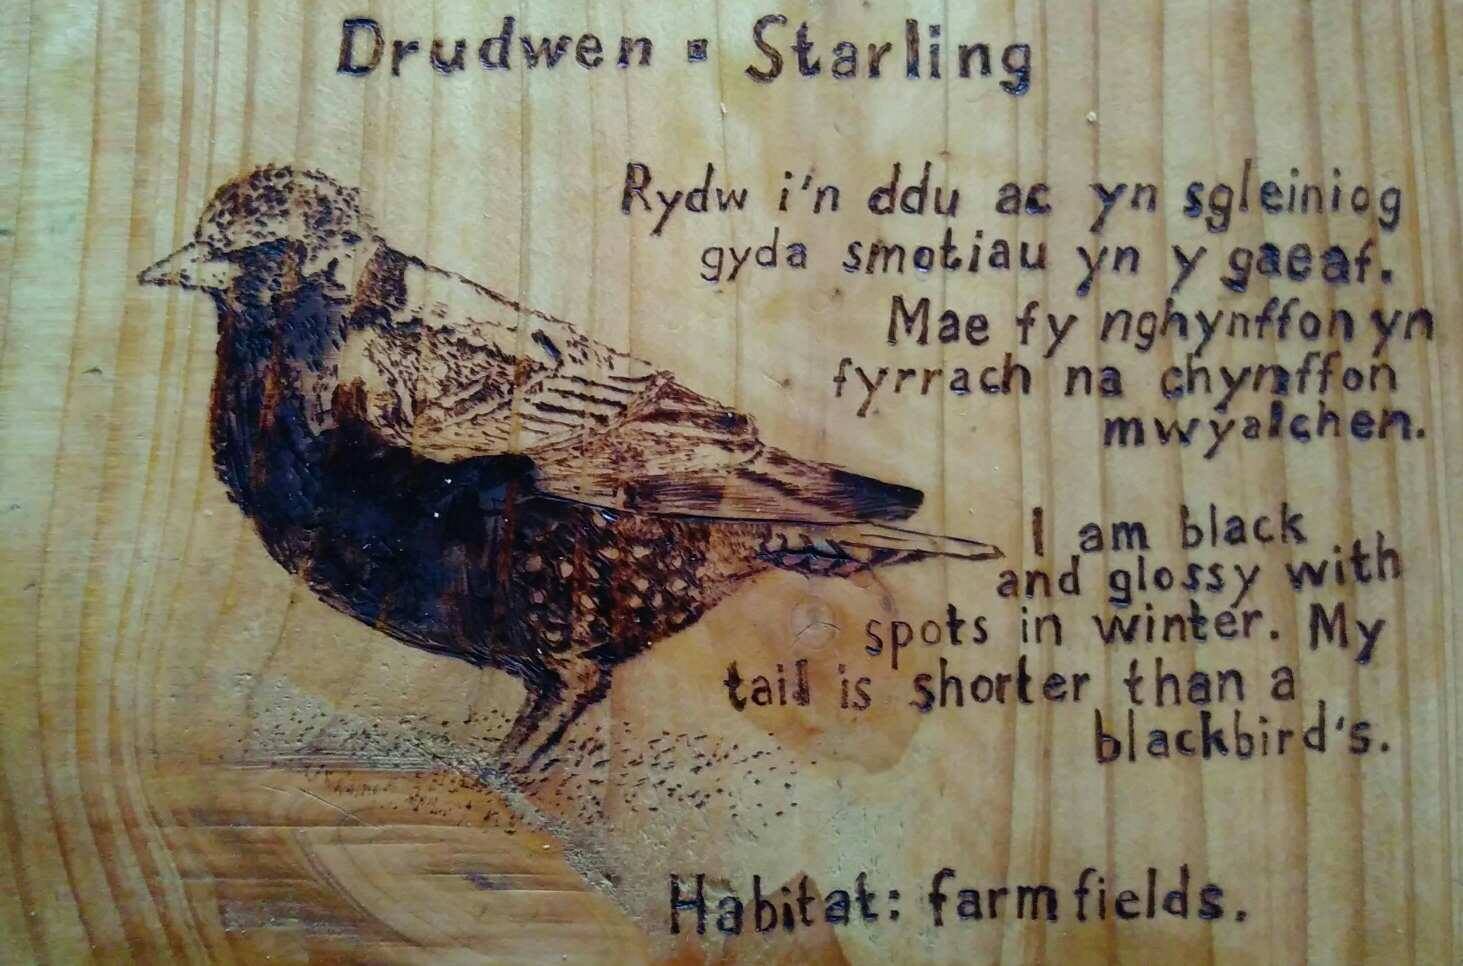 Drudwen ▪ Starling
Rydw i'n ddu ac yn sgleiniog
gyda smotiau yn y gaeaf.
Mae fy nghynffon yn
fyrrach na chynffon
mwyalchen.
I am black
and glossy with
spots in winter. My
tail is shorter than a
blackbird's.
Habitat: farm fields.